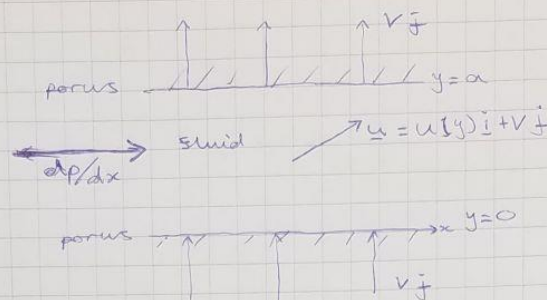 V j
porus y=a
fluid u = u(y) i + V j
dp/dx
porus x y=0
V j